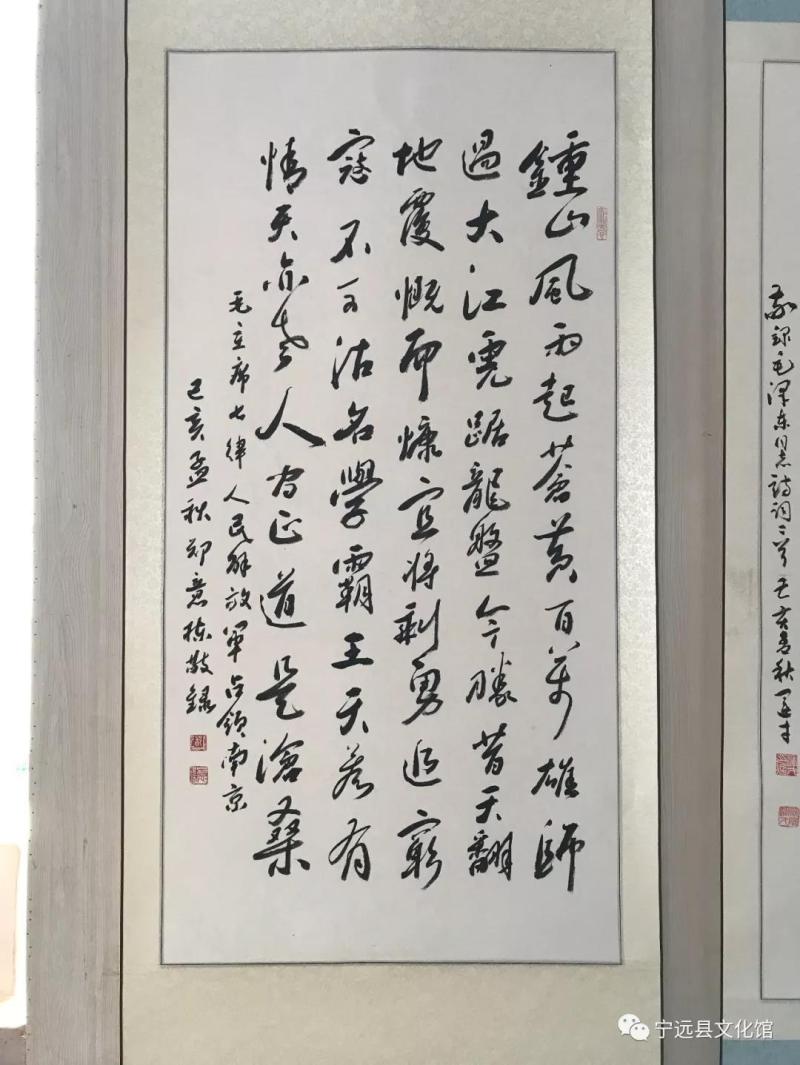 鍾山風雨起蒼黄百萬雄師
過大江虎踞龍盤今勝昔天翻
地覆慨而慷宜將剩勇追窮
寇不可沽名學霸王天若有
情天亦老人间正道是滄桑
毛主席七律人民解放軍占領南京
己亥孟秋郑意栋敬録
毛澤东同志詩詞二首
宁远县文化馆